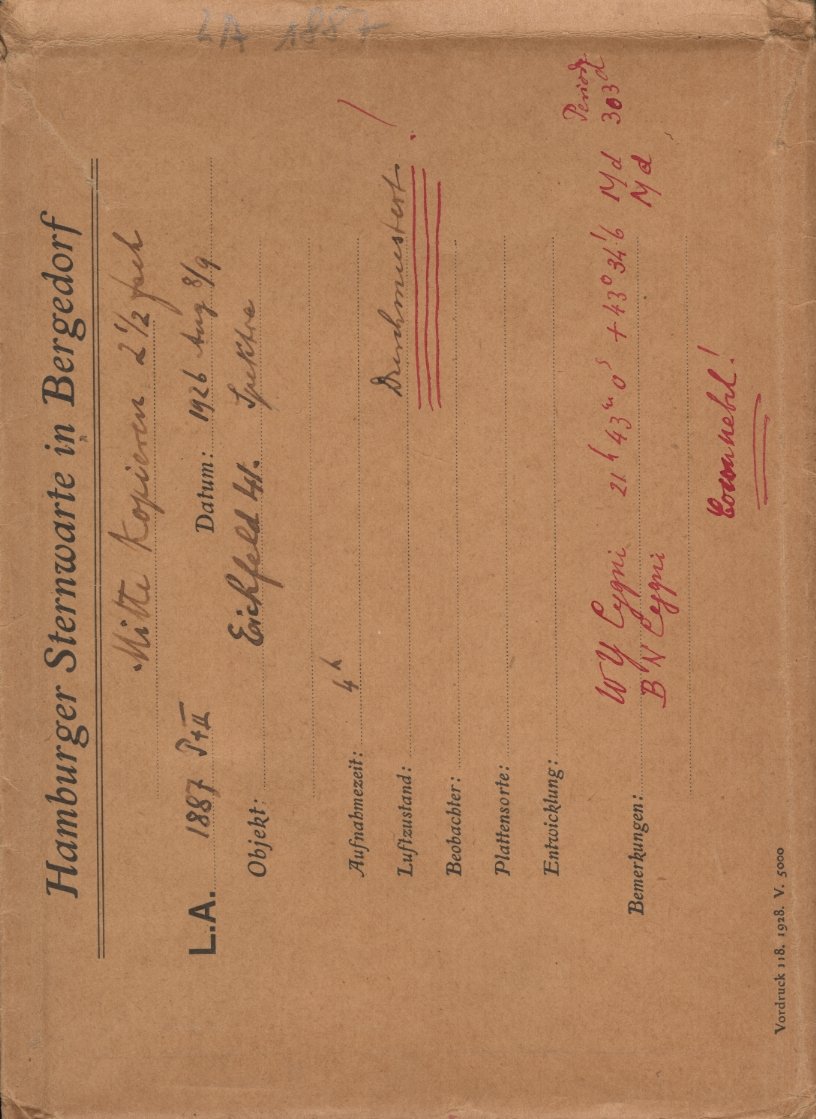 LA 1887
Hamburger Sternwarte in Bergedorf
Mitte Kopieren 2 1/2 fach
L.A. 1887 Datum: 1926 Aug 8/9
Objekt: Spektra
Aufnahmezeit: 4 h
Luftzustand: Durchmustert !
Beobachter:
Plattensorte:
Entwicklung:
Periode
WY Cygni 21 h 43 m 0 s + 43° 34!6 Md 303 d
Bemerkungen: BN Cygni Md
Vordruck 118. 1928. V. 5000